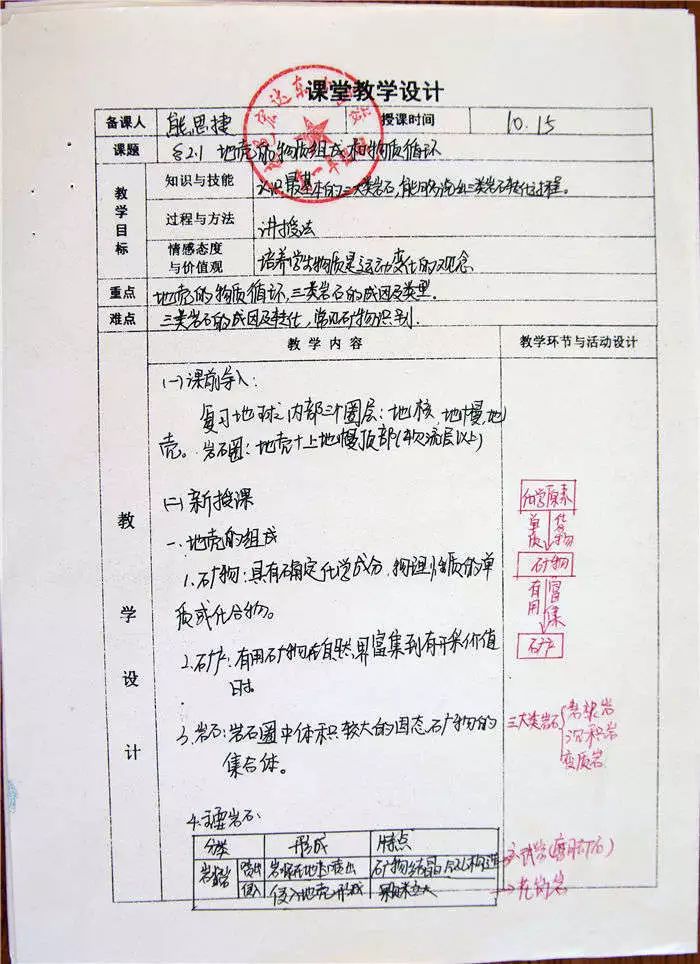 课堂教学设计
备课人 熊思捷 授课时间 10.15
课题 §2.1 地壳的物质组成和物质循环
教学目标
知识与技能 认识最基本的三大类岩石,能够说出三类岩石转化过程。
过程与方法 讲授法
情感态度与价值观 培养学生物质是运动变化的观念
重点 地壳的物质循环,三类岩石的成因及类型.
难点 三类岩石的成因及转化,常见矿物识别.
教学设计
教学内容 教学环节与活动设计
(一)课前导入:
复习地球内部三个圈层:地核 地幔,地
壳。岩石圈:地壳+上地幔顶部(软流层以上)
(二)新授课
一.地壳的组成
1.矿物:具有确定化学成分,物理性质的单
质或化合物。
2.矿产:有用矿物在自然界富集到有开采价值
时.
3.岩石:岩石圈中体积较大的固态矿物的
集合体。
4.主要岩石:
分类 形成 特点
岩浆岩 喷出 岩浆在地表喷出 矿物结晶 气孔构造
侵入 侵入地壳形成 颗粒大
化学元素
单质 化合物
矿物
有用 富集
矿产
三大类岩石
岩浆岩
沉积岩
变质岩
花岗岩